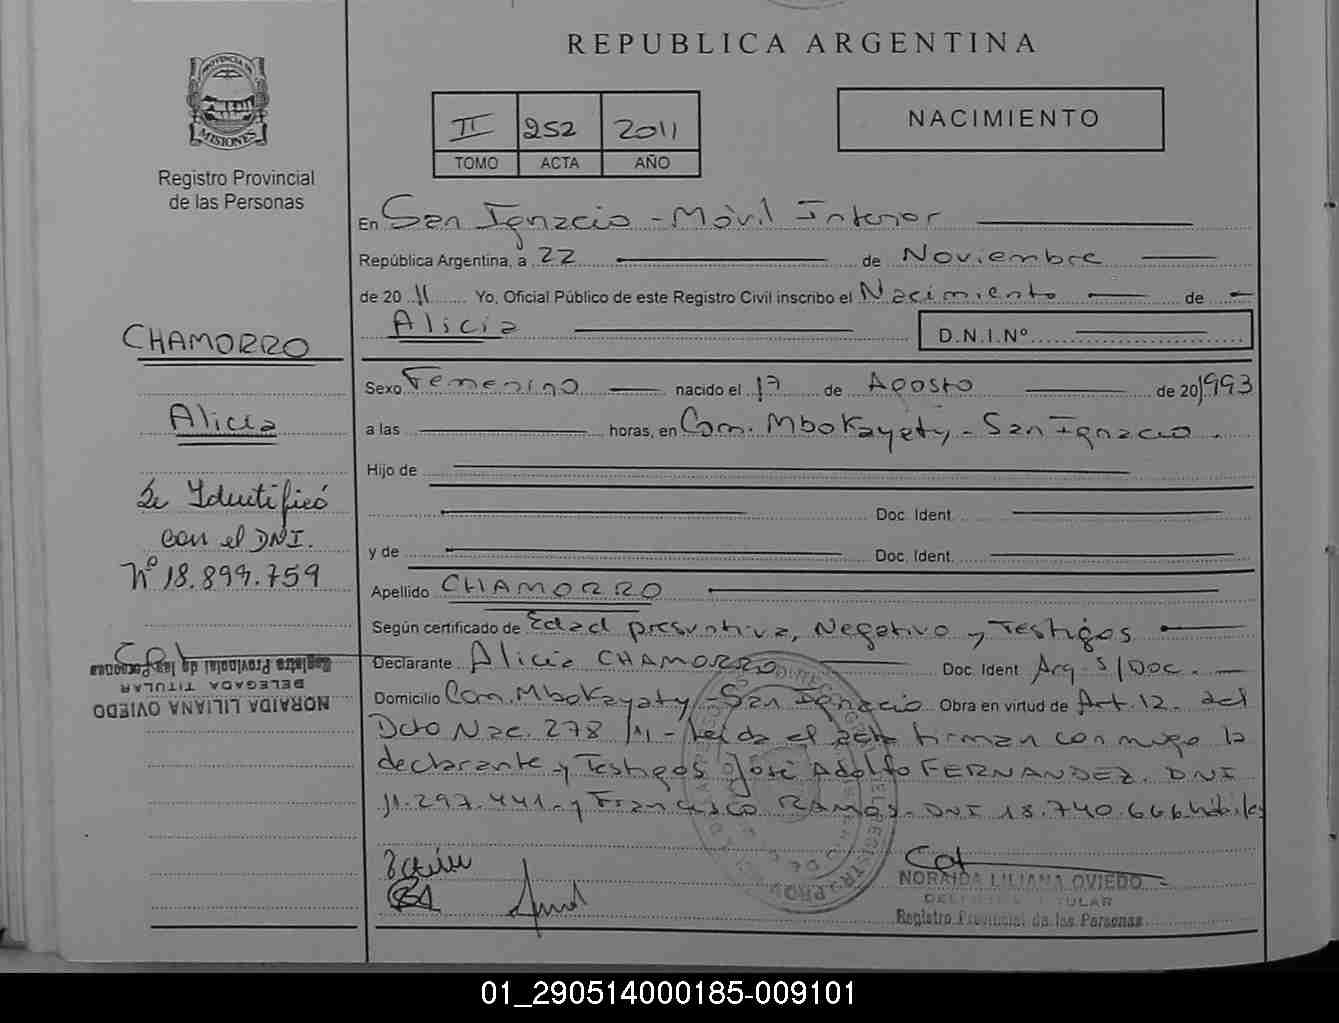 REPUBLICA ARGENTINA
PROVINCIA DE
MISIONES
Registro Provincial
de las Personas
II 252 2011
TOMO ACTA AÑO
NACIMIENTO
En San Ignacio - Móvil Interior
República Argentina, a 22 de Noviembre
de 20 11 Yo, Oficial Público de este Registro Civil inscribo el Nacimiento de
Alicia D.N.I.Nº
Sexo Femenino nacido el 17 de Agosto de 20 1993
a las horas, en Com. Mbokayaty - San Ignacio.
Hijo de
Doc. Ident.
y de Doc. Ident.
Apellido CHAMORRO
Según certificado de Edad presuntiva, Negativo y Testigos
Declarante Alicia CHAMORRO Doc. Ident Arg. S/Doc.
Domicilio Com. Mbokayaty - San Ignacio Obra en virtud de Art. 12. del
Dcto Nac. 278/11 - Leída el acta firman conmigo la
declarante y Testigos José Adolfo FERNANDEZ. DNI
11.297.441. y Francisco RAMOS. DNI 18.740.666 hábiles
NORAIDA LILIANA OVIEDO
DELEGADA TITULAR
Registro Provincial de las Personas
CHAMORRO
Alicia
Se Identificó
con el DNI.
Nº 18.899.759
Registro Provincial de las Personas
DELEGADA TITULAR
NORAIDA LILIANA OVIEDO
01_290514000185-009101